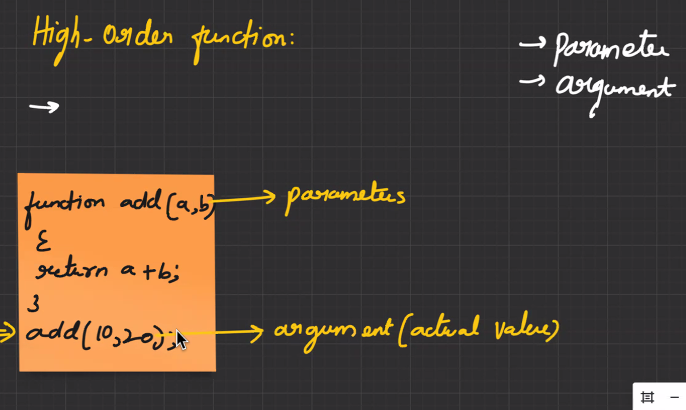 High-Order function:
→ Parameter
→ argument
→
function add(a,b) → parameters
{
return a+b;
}
add(10,20); → argument (actual value)